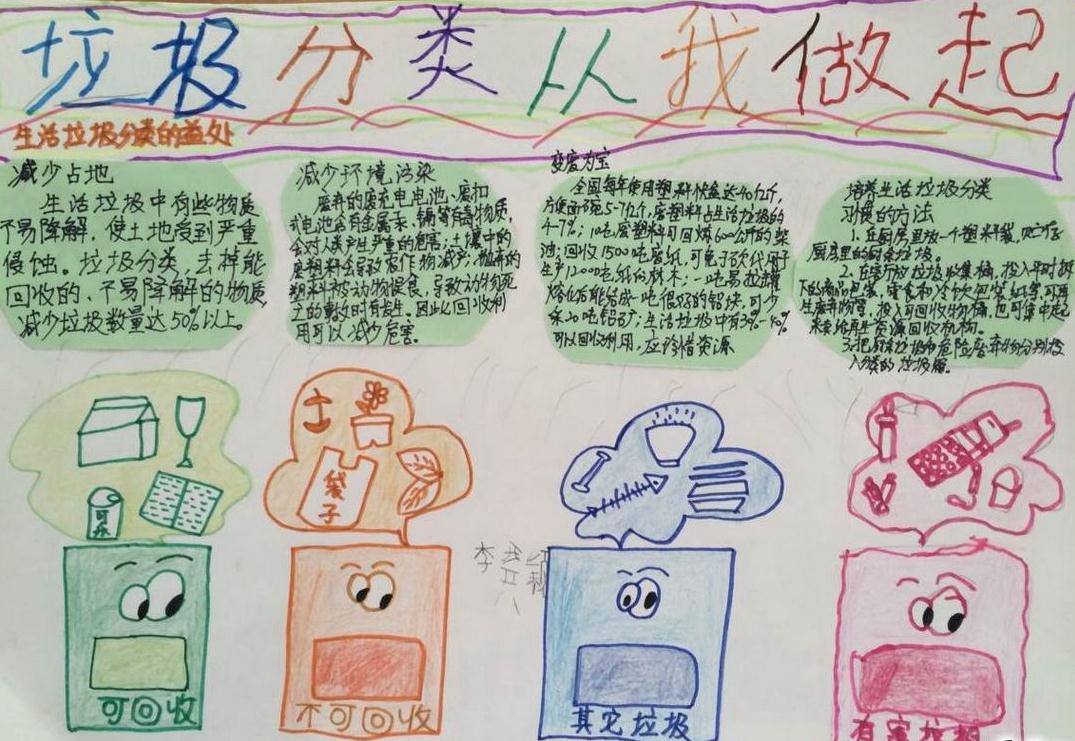 垃圾分类从我做起
生活垃圾分类的益处
减少占地
生活垃圾中有些物质
不易降解,使土地受到严重
侵蚀。垃圾分类,去掉能
回收的、不易降解的物质,
减少垃圾数量达50%以上。
减少环境污染
废弃的废充电电池、废扣
式电池含有金属汞、镉等有毒物质,
会对人类产生严重的危害;土壤中的
废塑料会导致农作物减产;抛弃的
塑料被动物误食,导致动物死
亡的事故时有发生。因此回收利
用可以减少危害。
变废为宝
全国每年使用塑料快餐盒达40亿个,
方便面碗5-7亿个,废塑料占生活垃圾的
4-7%;10吨废塑料可回炼600公斤的柴
油;回收1500吨废纸,可免于砍伐用于
生产1200吨纸的林木;一吨易拉罐
熔化后能结成一吨很好的铝块,可少
采20吨铝矿;生活垃圾中有30%-40%
可以回收利用,应珍惜资源
培养生活垃圾分类
习惯的方法
1.在厨房里放一个塑料袋,
厨房里的厨余垃圾。
2.在客厅放垃圾收集桶,投入平时拆
下的商品包装、零食和冷饮包装如等,可再
生废弃物等,投入可回收物桶,也可集中起
来卖给再生资源回收机构。
3.把厨余垃圾和危险废弃物分别投
入分类的垃圾桶。
土
袋
子
可
乐
李
可回收
不可回收
其它垃圾
有害垃圾